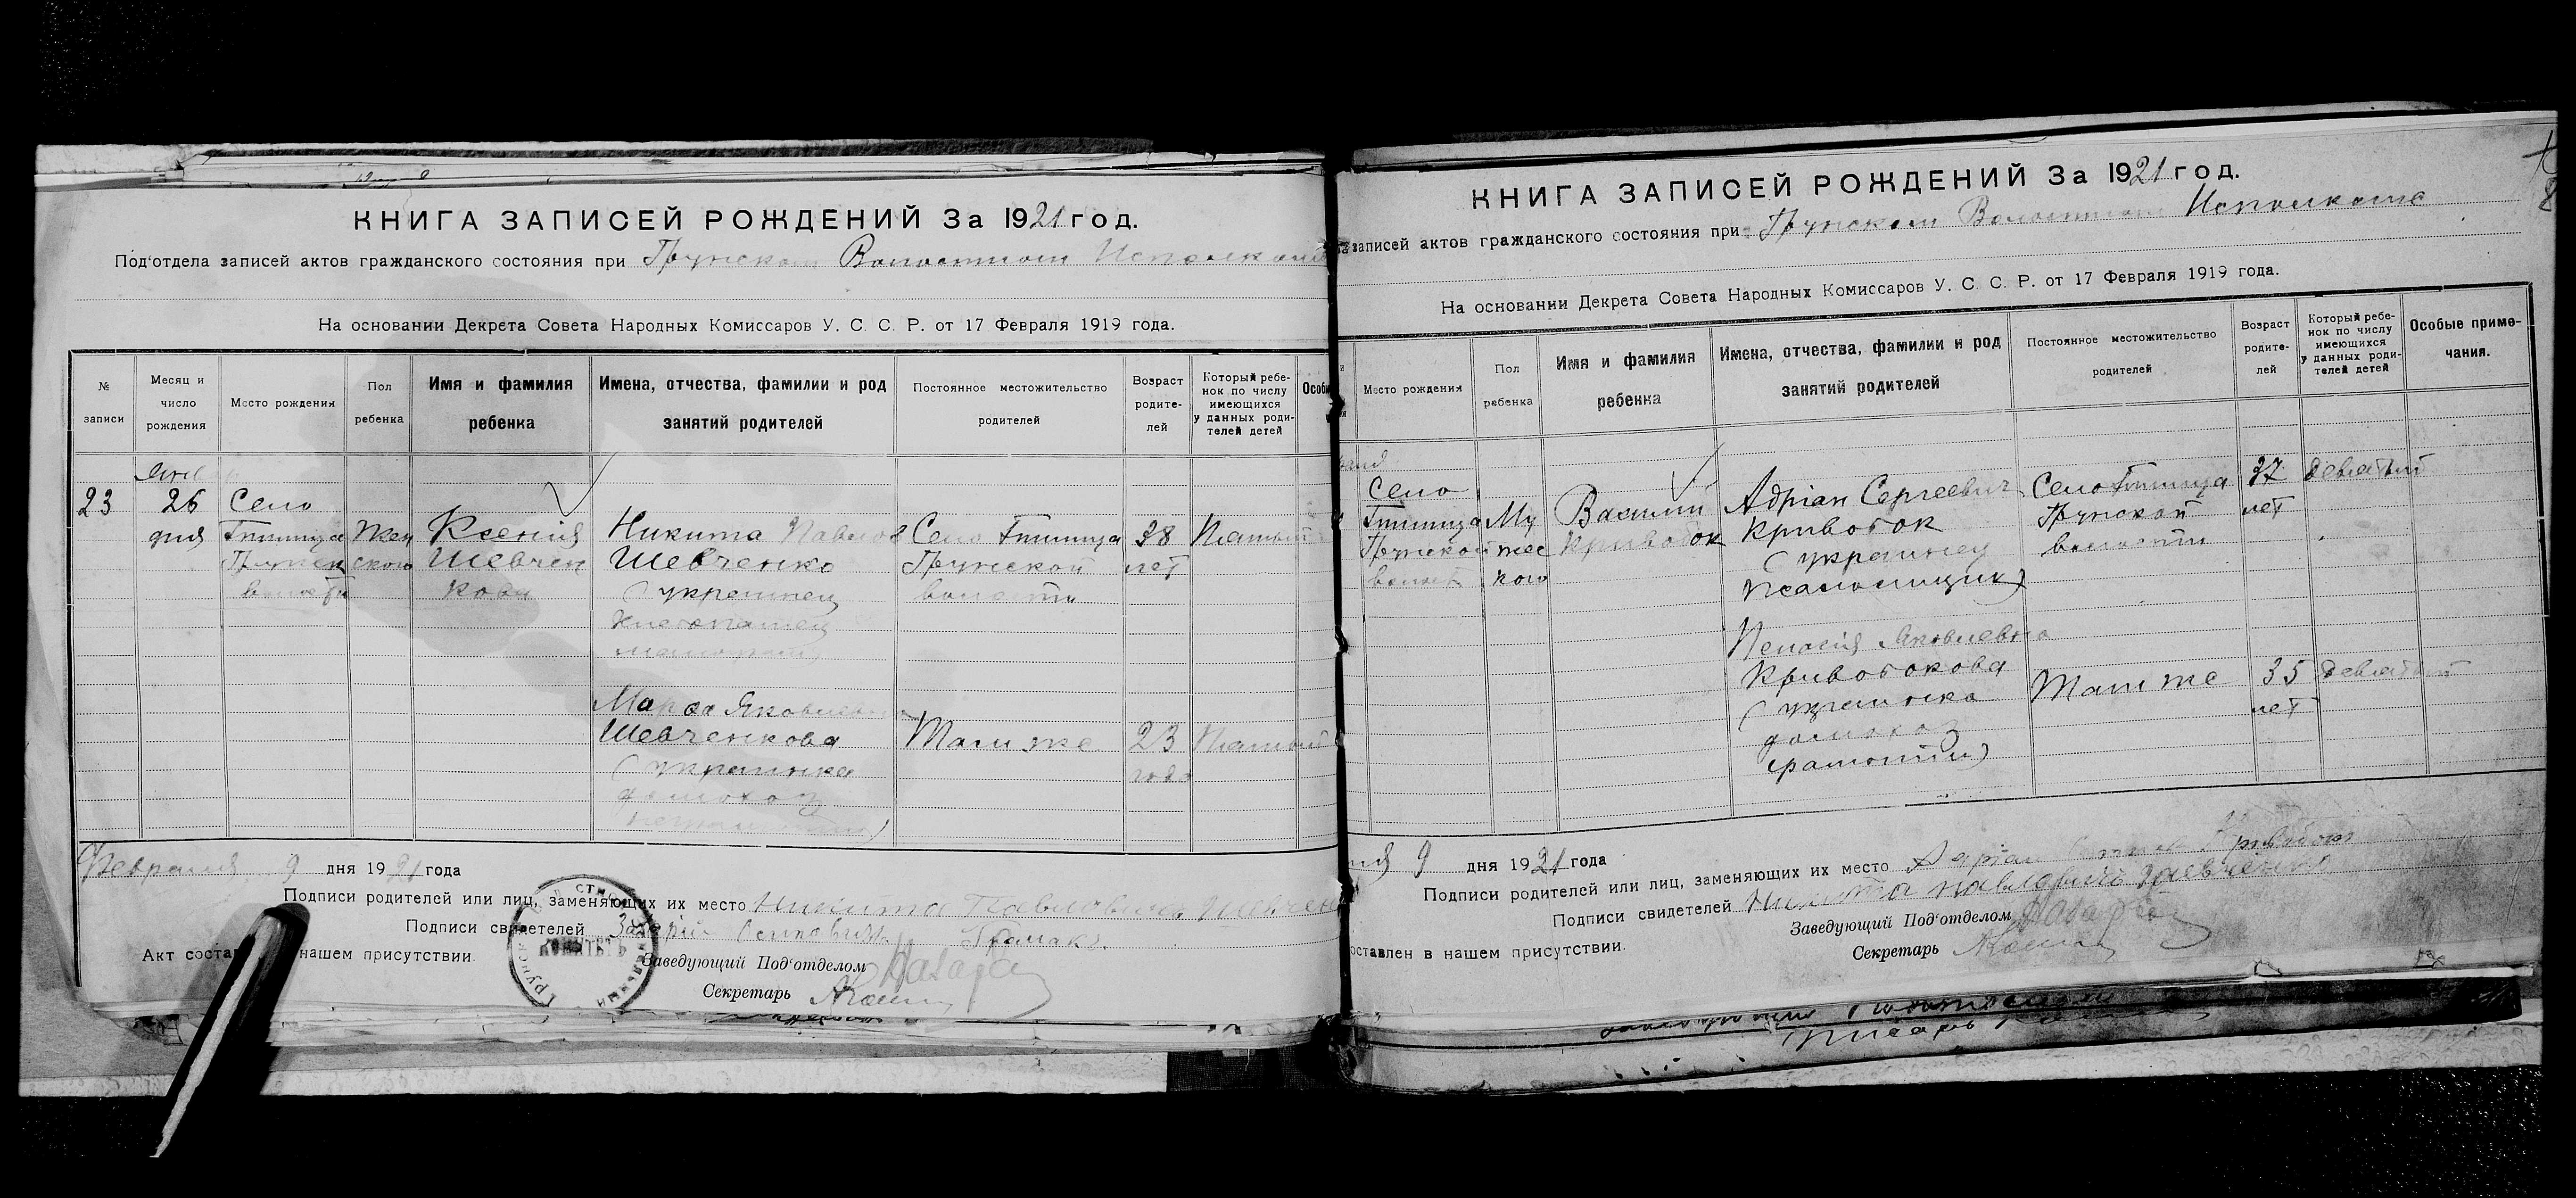 КНИГА ЗАПИСЕЙ РОЖДЕНИЙ За 1921 год.
Под'отдела записей актов гражданского состояния при Грунском Волостном
На основании Декрета Совета Народных Комиссаров У. С. С. Р. от 17 Февраля 1919 года.
№ записи
Месяц и число рождения
Место рождения
Пол ребенка
Имя и фамилия ребенка
Имена, отчества, фамилии и род занятий родителей
Постоянное местожительство родителей
Возраст родите-лей
Который ребе-нок по числу имеющихся у данных роди-телей детей
23
26
дня
Село
Жен
ского
Ксенія
Шевчен
кова
Никита
Шевченко
(украинец
Село
Грунской
волости
38
лет
Пятый
Яковлевна
Шевченкова
(украинка
домохоз
Там же
23
года
Пятый
Февраля 9 дня 1921 года
Подписи родителей или лиц, заменяющих их место Никита Павловичъ
Подписи свидетелей
Акт соста нашем присутствии.
Заведующий Под'отделом
Секретарь
КОМИТЕТЪ
КНИГА ЗАПИСЕЙ РОЖДЕНИЙ За 1921 год.
записей актов гражданского состояния при Грунском Волостном Исполкоме
На основании Декрета Совета Народных Комиссаров У. С. С. Р. от 17 Февраля 1919 года.
Место рождения
Пол ребенка
Имя и фамилия ребенка
Имена, отчества, фамилии и род занятий родителей
Постоянное местожительство родителей
Возраст родите-лей
Который ребе-нок по числу имеющихся у данных роди-телей детей
Особые приме-чания.
Село
Грунской
волост
Му
жес
кого
Василий
Кривобок
Адріан Сергеевич
Кривобок
(украинец
псаломщик)
Село
Грунской
волости
37
лет
девятый
Яковлевна
Кривобокова
(украинка
домохоз
грамотны)
Там же
35
лет
девятый
9 дня 1921 года
Подписи родителей или лиц, заменяющих их место Адріан Кривобок
Подписи свидетелей Никита Павловичъ Шевченко
оставлен в нашем присутствии.
Заведующий Под'отделом
Секретарь